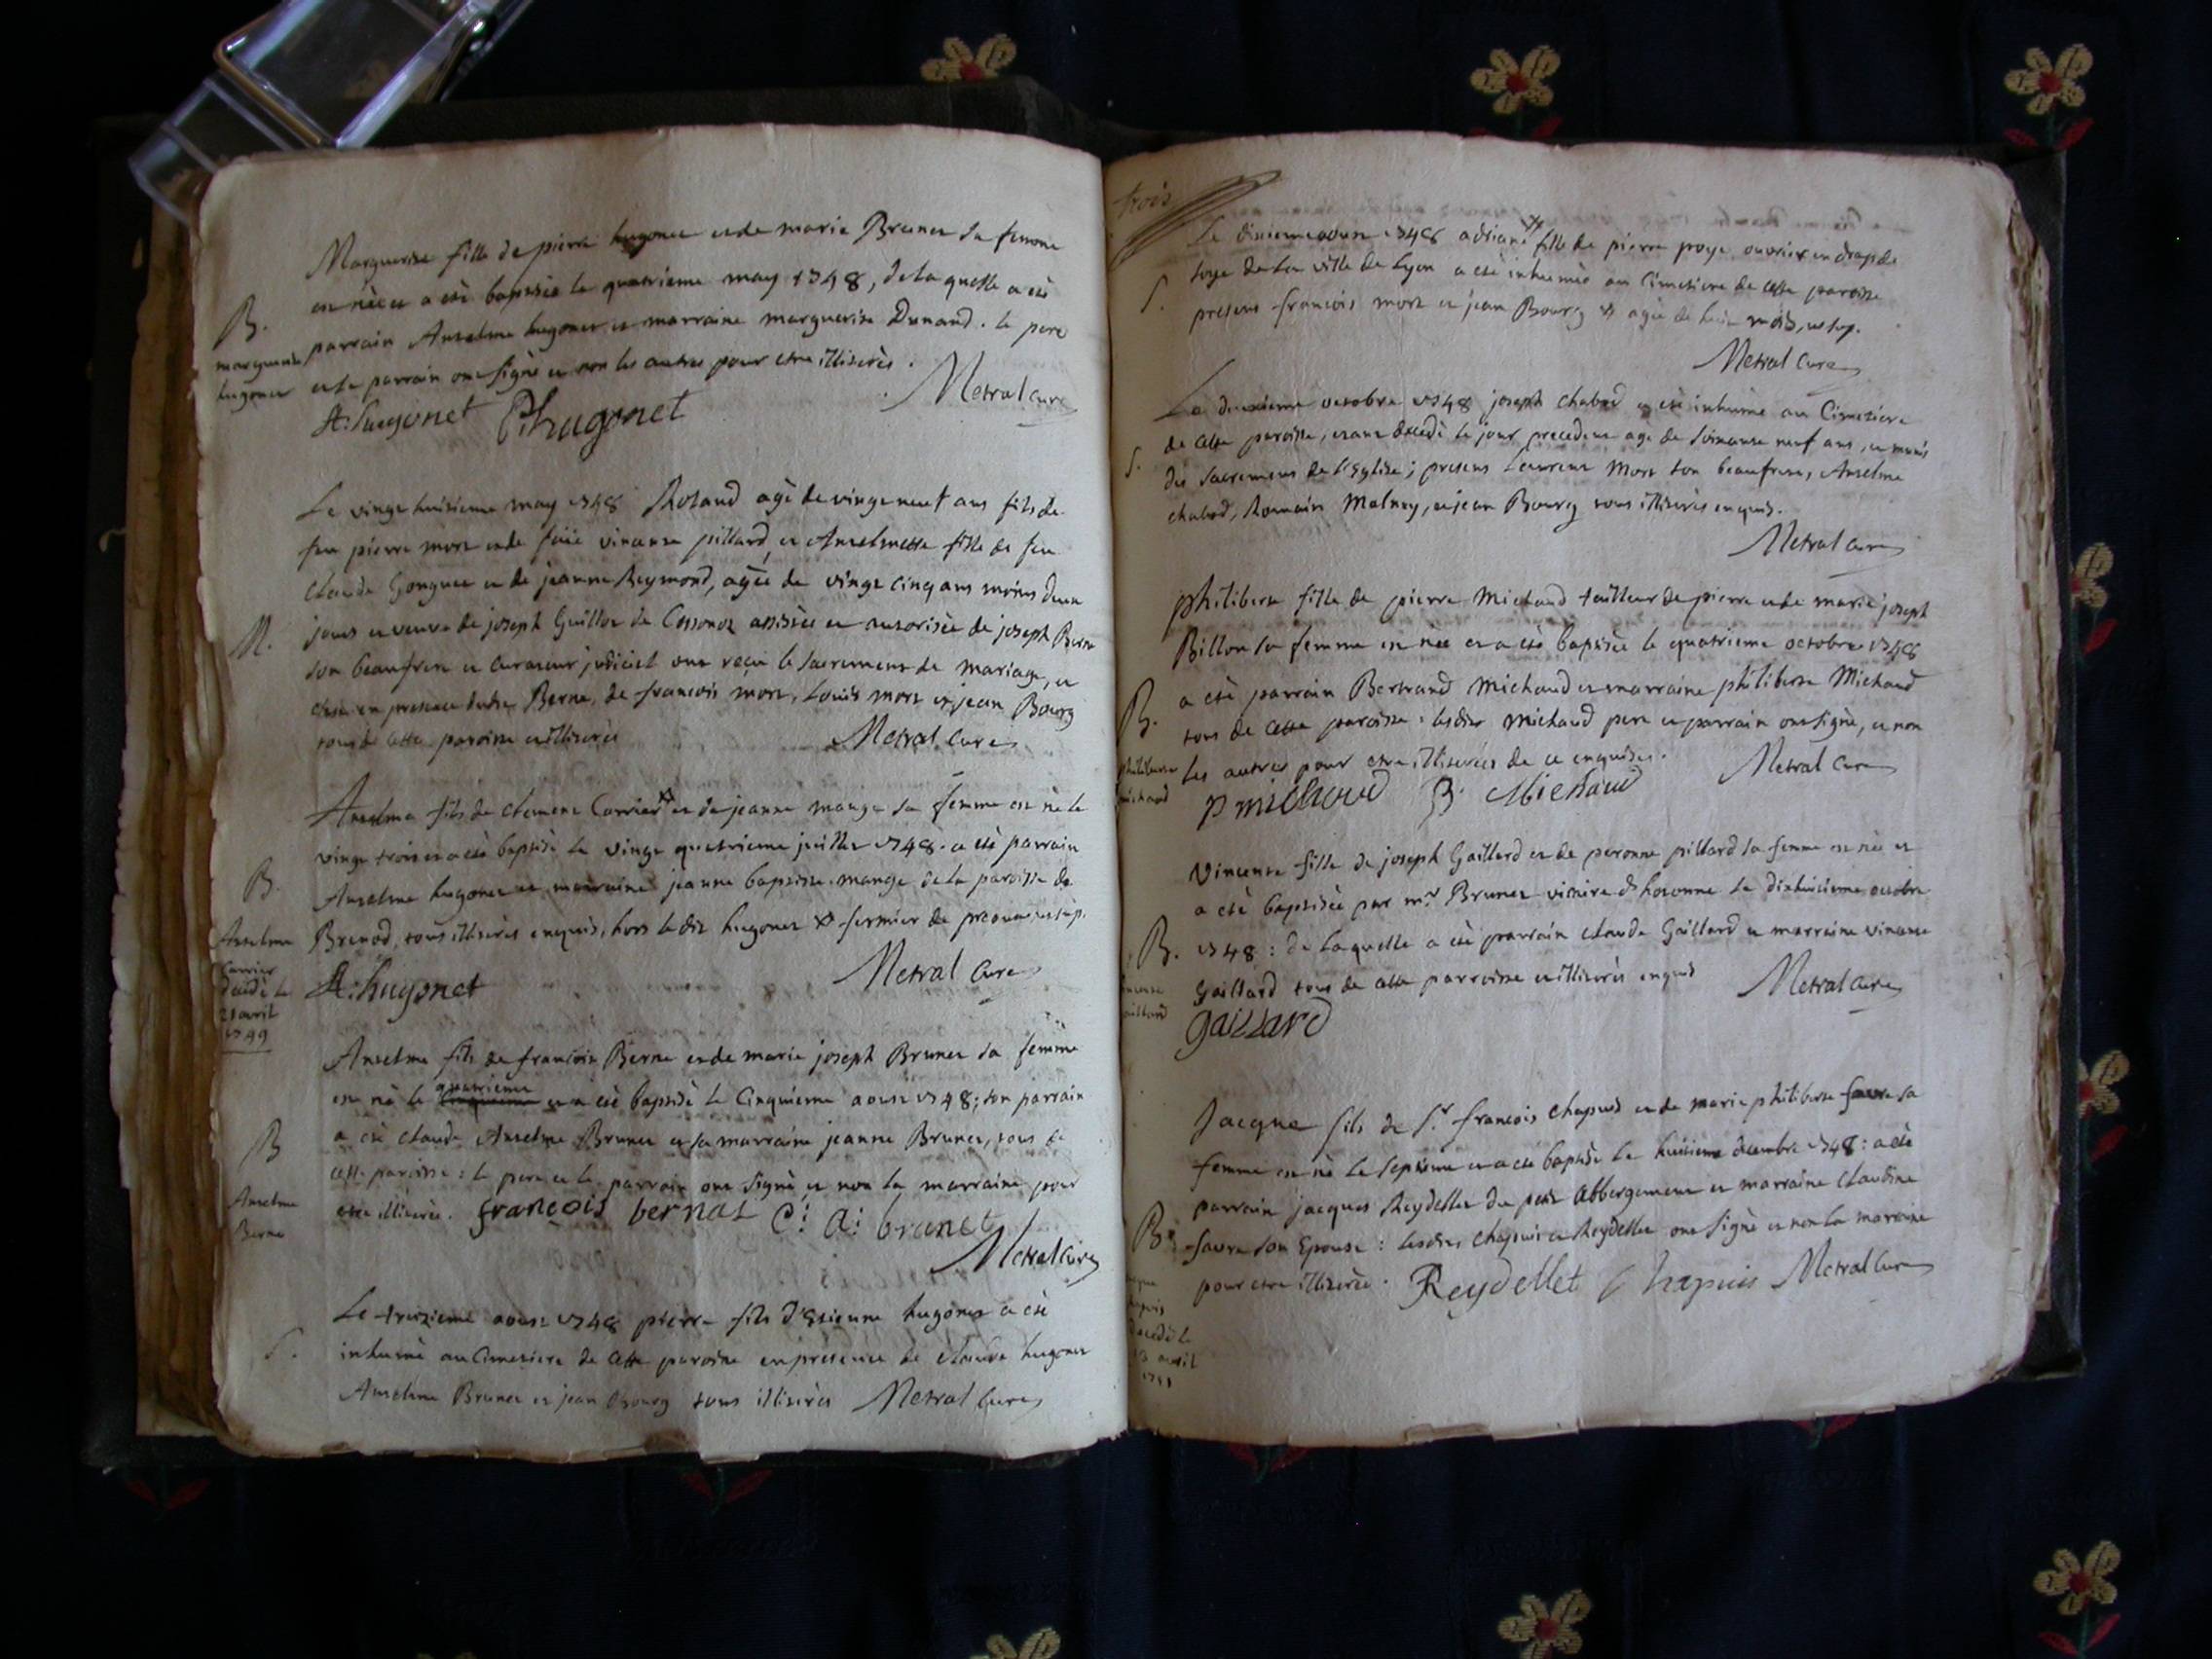 Marguerite fille de pierre hugonet et de marie Brunet sa femme
est née et a été baptisée le quatrieme may 1748, de laquelle a été
B.
parrain Anselme hugonet et marraine marguerite Dunand. le pere
marguerite
et le parrain ont signé et non les autres pour etre illiterés.
hugonet
Metral curé
A: hugonet P: hugonet
Le vingt huitieme may 1748 Roland agé de vingt neuf ans fils de
feu pierre mort et de vincente pillard, et Anselmette fille de feu
Claude Gonguet et de jeanne Reymond, agée de vingt cinq ans moins
M.
jours et veuve de joseph Guillot de assistée et autorisée de joseph Berne
son beaufrere et curateur judiciel ont reçu le sacrement de mariage, et
en presence dudit Berne, de francois mort, Louis mort et jean Bourg
tous de cette paroisse et illiterés
Metral curé
Anselme fils de clement Carrier et de jeanne mange sa femme est né le
vingt trois et a été baptisé le vingt quatrieme juillet 1748. a été parrain
B.
Anselme hugonet et marraine jeanne baptiste mange de la paroisse de
Anselme
Brenod, tous illiterés enquis, hors le dit hugonet fermier de
Carrier
decedé le
21 avril
1749
Metral curé
A: hugonet
Anselme fils de francois Berne et de marie joseph Brunet sa femme
quatrieme
est né le et a été baptisé le Cinquieme aoust 1748; son parrain
B
a été claude Anselme Brunet et sa marraine jeanne Brunet, tous de
cette paroisse: le pere et le parrain ont signé et non la marraine pour
Anselme
Berne
etre illiterée. françois bernat C: A: brunet
Metral curé
Le treizieme aoust 1748 pierre fils d'Estienne hugonet a été
S.
inhumé au cimetiere de cette paroisse en presence de claude hugonet
Anselme Brunet et jean Bourg tous illiterés Metral Curé
trois
Le aoust 1748 adriane fille de pierre poye ouvrier en drap de
soye de la ville de Lyon a été inhumée au Cimetiere de cette paroisse
S.
presens francois mort et jean Bourg agée de huit mois,
Metral Curé
Le deuxieme octobre 1748 joseph chabod a été inhumé au Cimetiere
de cette paroisse, etant decedé le jour precedent agé de soixante neuf ans, et muni
S.
des sacremens de l'Eglise; presens Laurent Mort son beaufrere, Anselme
chabod, Romain et jean Bourg tous illiterés enquis.
Metral curé
philiberte fille de pierre Michaud tailleur de pierre et de marie joseph
Billon sa femme est née et a été baptisée le quatrieme octobre 1748
a été parrain Bertrand Michaud et marraine philiberte Michaud
B.
tous de cette paroisse: lesdits michaud pere et parrain ont signé, et non
philiberte
michaud
les autres pour etre illiterées de ce enquises.
Metral Curé
P michaud B. Michaud
Vincente fille de joseph Gaillard et de peronne pillard sa femme est née et
a été baptisée par mr Brunet vicaire d'hotonne le dixhuitieme octobre
B.
1748: de laquelle a été parrain claude Gaillard et marraine vincente
Gaillard tous de cette parroisse et illiterés enquis
Metral Curé
gaillard
Jacque fils de Sr. francois chapuis et de marie philiberte favre sa
femme est né le septieme et a été baptisé le huitieme decembre 1748: a été
parrain jacques Reydellet du petit Abbergement et marraine Claudine
B.
favre son Epouse: lesdits chapuis et Reydellet ont signé et non la marraine
pour etre illiterée. Reydellet Chapuis Metral Curé
decedé le
13 avril